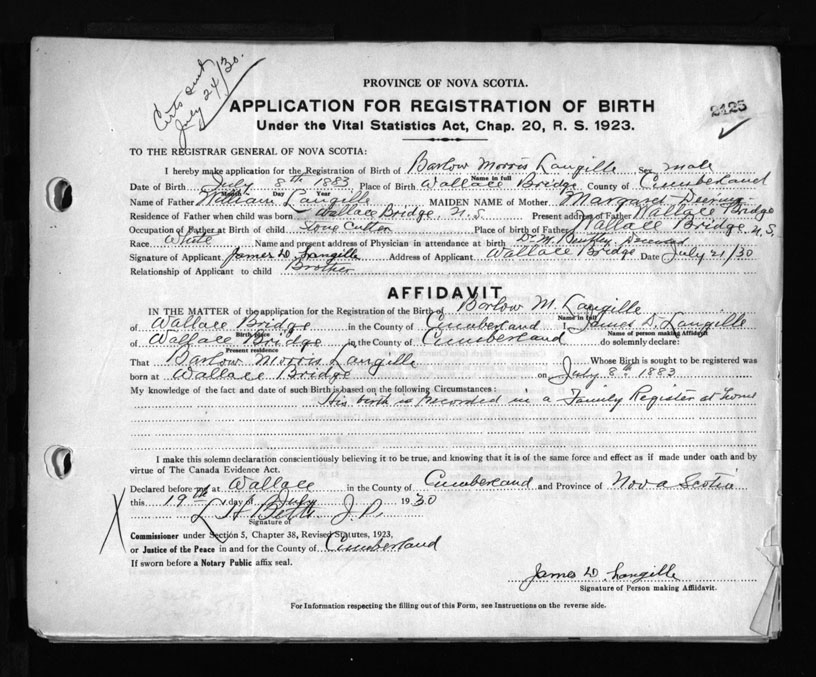 Certs sent
July 24/30.
PROVINCE OF NOVA SCOTIA.
APPLICATION FOR REGISTRATION OF BIRTH
2425
Under the Vital Statistics Act, Chap. 20, R. S. 1923.
TO THE REGISTRAR GENERAL OF NOVA SCOTIA:
I hereby make application for the Registration of Birth of Barlow Morris Langille Sex male
Name in full
Date of Birth July 8th 1883 Place of Birth Wallace Bridge County of Cumberland
Month Day Year
Name of Father William Langille MAIDEN NAME of Mother Margaret
Residence of Father when child was born Wallace Bridge, N.S. Present address of Father Wallace Bridge
Occupation of Father at Birth of child Stone Cutter Place of birth of Father Wallace Bridge N.S.
Race White Name and present address of Physician in attendance at birth Dr. M. Deceased
Signature of Applicant James D. Langille Address of Applicant Wallace Bridge Date July 21/30
Relationship of Applicant to child Brother
AFFIDAVIT
IN THE MATTER of the application for the Registration of the Birth of Barlow M. Langille
Name in full
of Wallace Bridge in the County of Cumberland I James D. Langille
Birth place Name of person making Affidavit
of Wallace Bridge in the County of Cumberland do solemnly declare:
Present residence
That Barlow Morris Langille Whose Birth is sought to be registered was
born at Wallace Bridge on July 8th 1883
My knowledge of the fact and date of such Birth is based on the following Circumstances:
His birth is recorded in a Family Register at home
I make this solemn declaration conscientiously believing it to be true, and knowing that it is of the same force and effect as if made under oath and by
virtue of The Canada Evidence Act.
Declared before me at Wallace in the County of Cumberland and Province of Nova Scotia
this 19th day of July 1930
L H Betts J.P.
Signature of
Commissioner under Section 5, Chapter 38, Revised Statutes, 1923,
or Justice of the Peace in and for the County of Cumberland
If sworn before a Notary Public affix seal.
James D. Langille
Signature of Person making Affidavit.
For Information respecting the filling out of this Form, see Instructions on the reverse side.